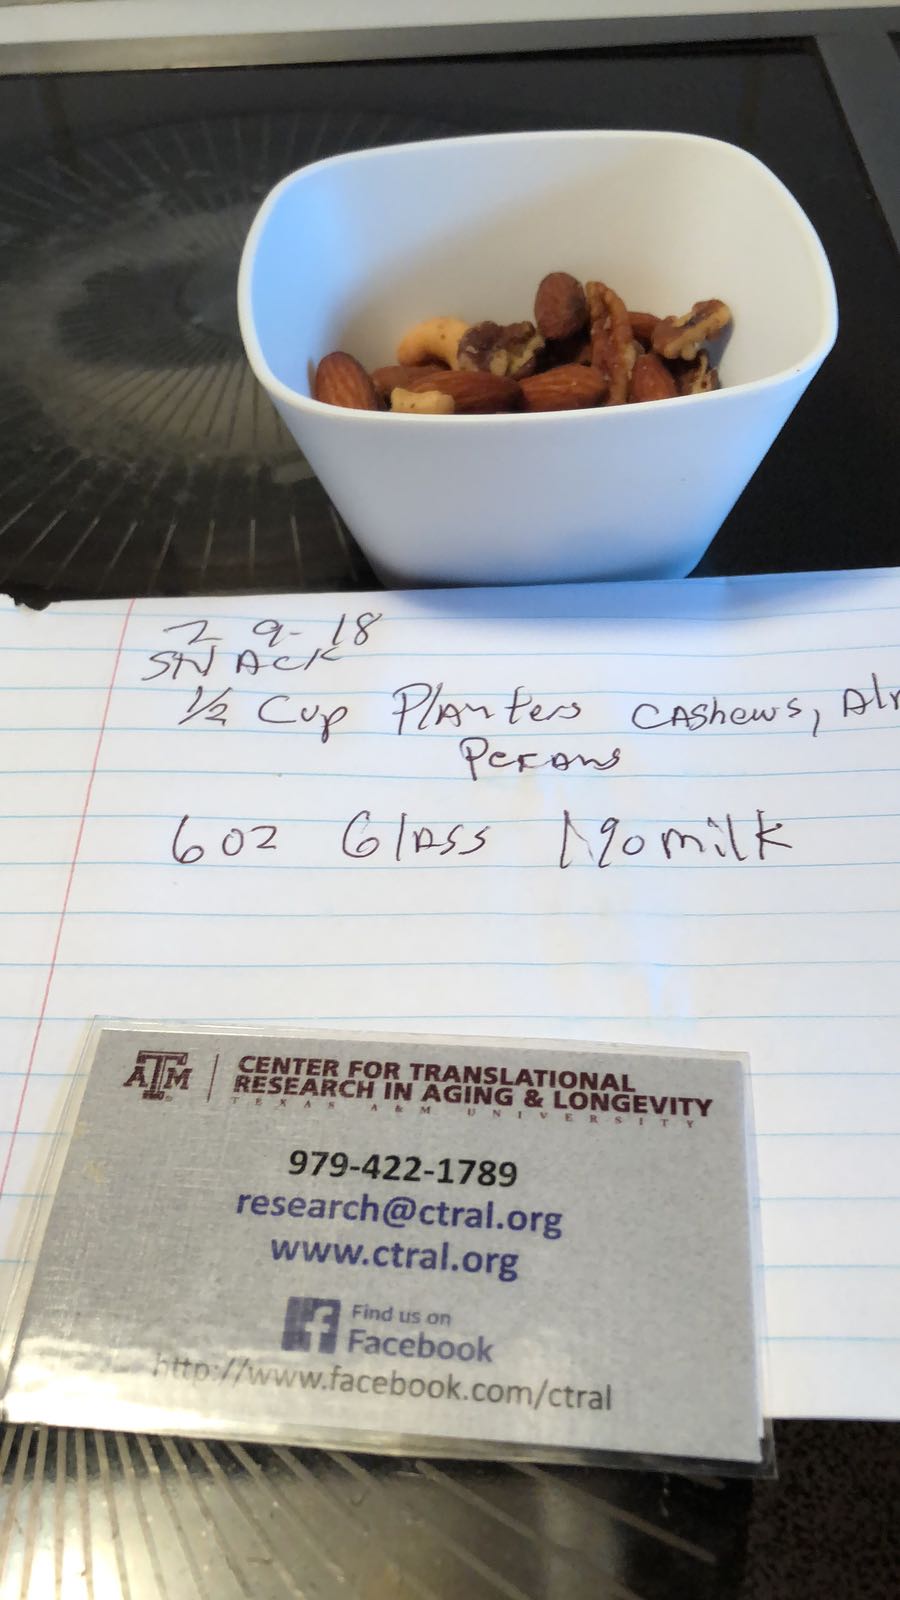 2 9-18
SNACK
1/2 Cup Planters CAshews, Alr
Pecans
6 oz Glass 1% milk
ATM
CENTER FOR TRANSLATIONAL
RESEARCH IN AGING & LONGEVITY
TEXAS A&M UNIVERSITY
979-422-1789
research@ctral.org
www.ctral.org
Find us on
Facebook
http://www.facebook.com/ctral